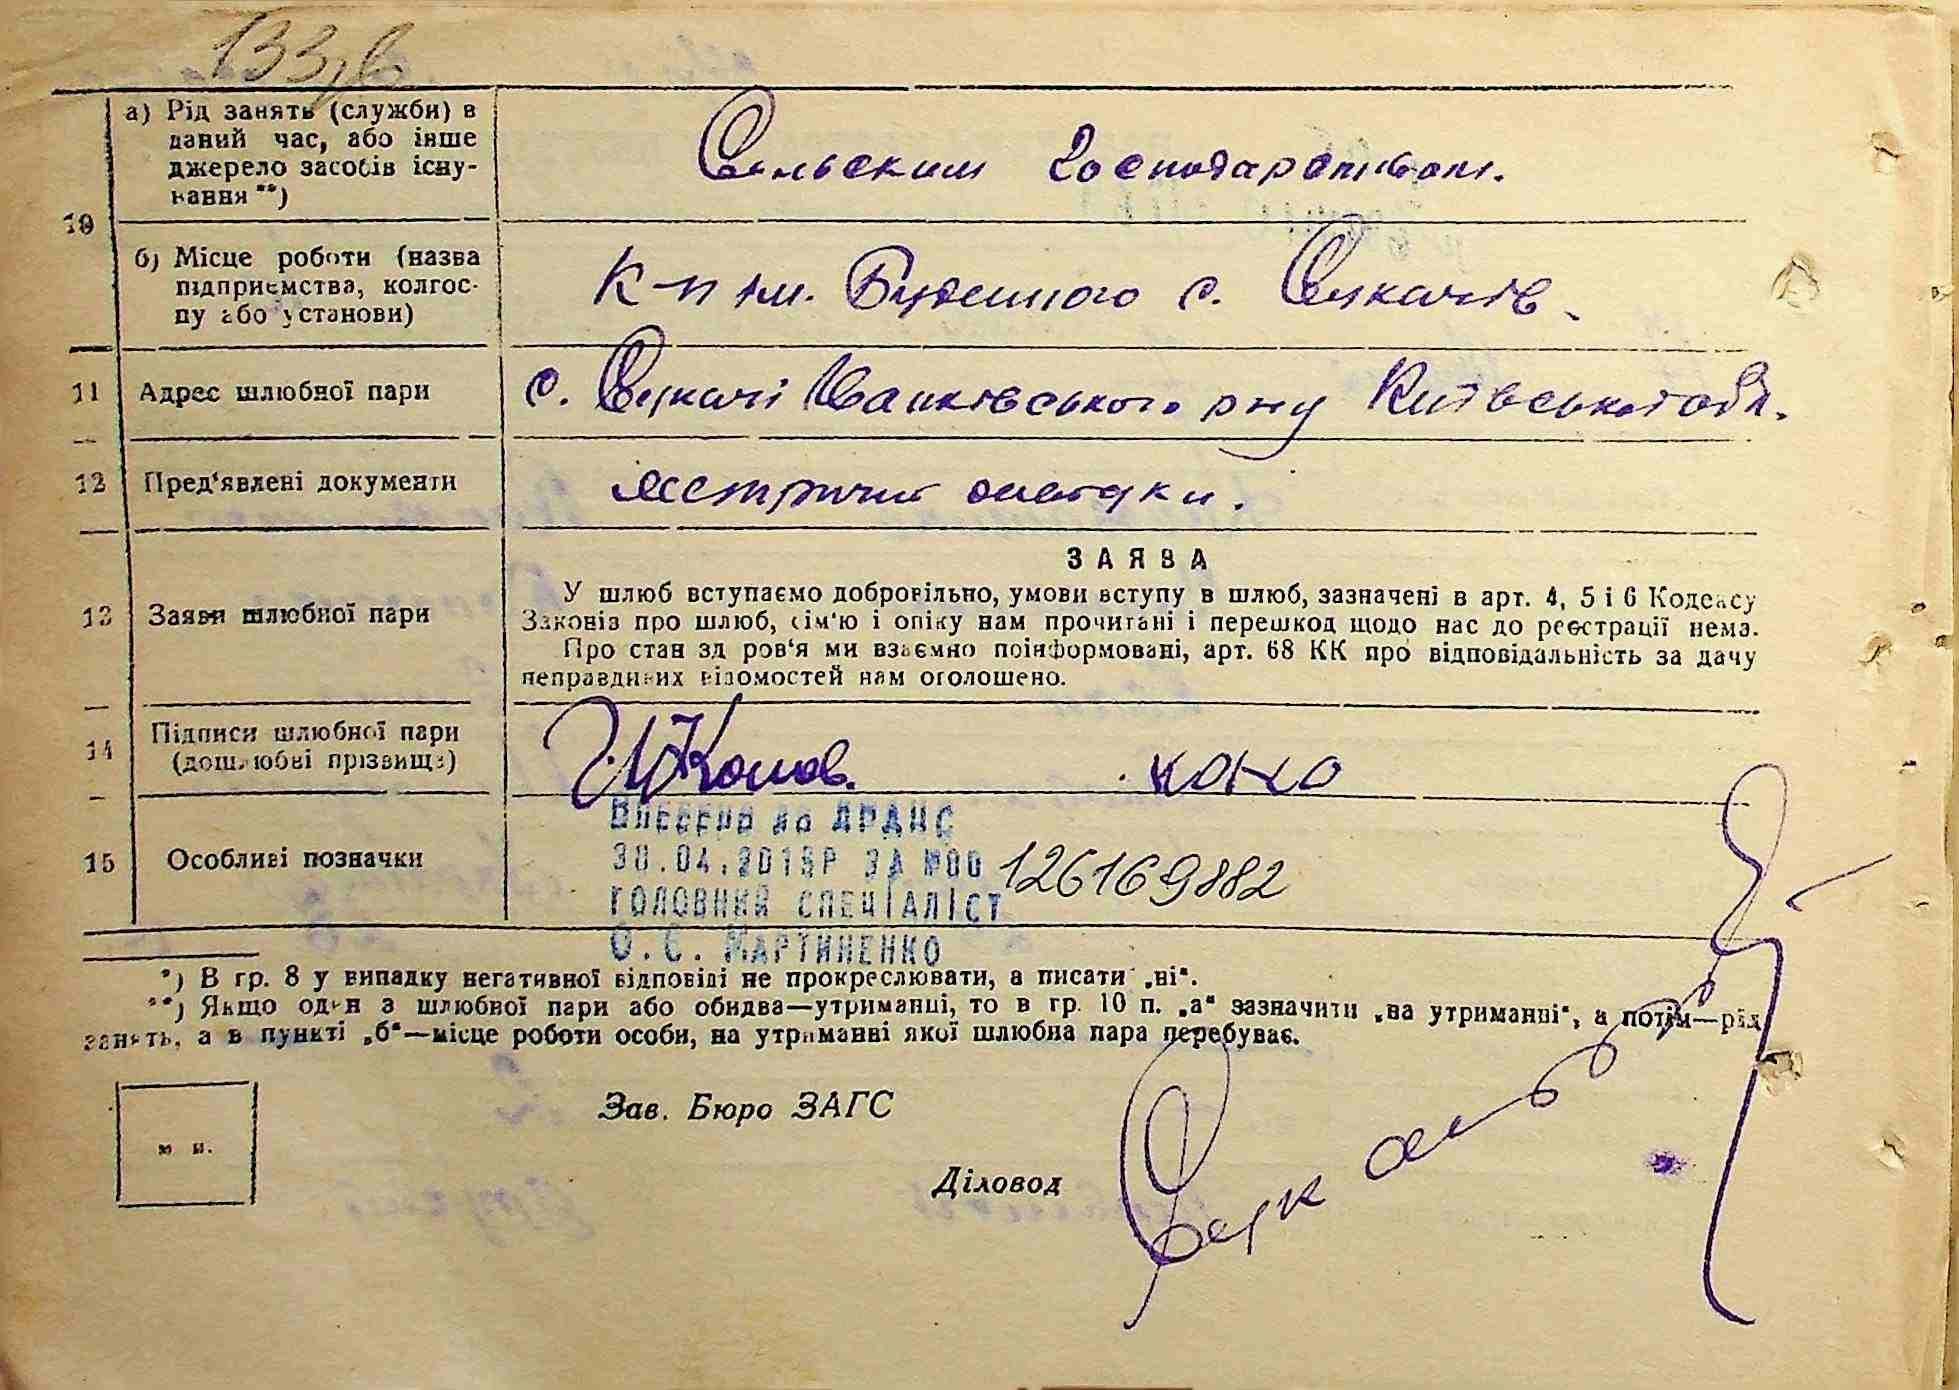 133,в
а) Рід занять (служби) в
даний час, або інше
джерело засобів існу-
вання **)
Сельским господарством.
10
б) Місце роботи (назва
підприємства, колгос-
пу або установи)
К-п ім. Буденного с. Сукачів.
11 Адрес шлюбної пари с. Сукачі Іванківського р-ну Київської обл.
12 Пред'явлені документи метричні виписки.
13 Заяви шлюбної пари
ЗАЯВА
У шлюб вступаємо добровільно, умови вступу в шлюб, зазначені в арт. 4, 5 і 6 Кодексу
Законів про шлюб, сім'ю і опіку нам прочитані і перешкод щодо нас до реєстрації нема.
Про стан здоров'я ми взаємно поінформовані, арт. 68 КК про відповідальність за дачу
неправдивих відомостей нам оголошено.
14 Підписи шлюбної пари
(дошлюбні прізвища)
15 Особливі позначки
Внесено до ДРАЦС
30.04.2013Р ЗА №00 126169882
ГОЛОВНИЙ СПЕЦІАЛІСТ
О.Є. МАРТИНЕНКО
*) В гр. 8 у випадку негативної відповіді не прокреслювати, а писати „ні“.
**) Якщо оден з шлюбної пари або обидва—утриманці, то в гр. 10 п. „а“ зазначити „на утриманні“, а потім—рід
занять, а в пункті „б“—місце роботи особи, на утриманні якої шлюбна пара перебуває.
м п.
Зав. Бюро ЗАГС
Діловод